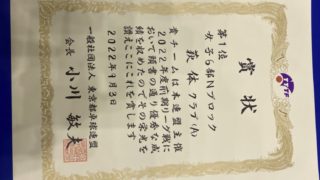 賞状
第1位
女子6部Nブロック
萩体クラブ(A)
貴チームは本連盟主催
2022年度前期リーグ戦に
おいて頭書の通り優秀な成
績を収めたのでその栄光を
讃えここにこれを賞します
2022年9月3日
一般社団法人 東京都卓球連盟
会長 小川敏夫